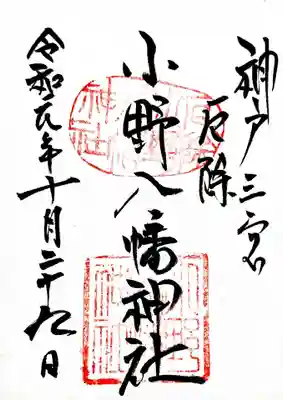 神戸三宮
厄除
小野八幡神社
令和元年十月二十九日